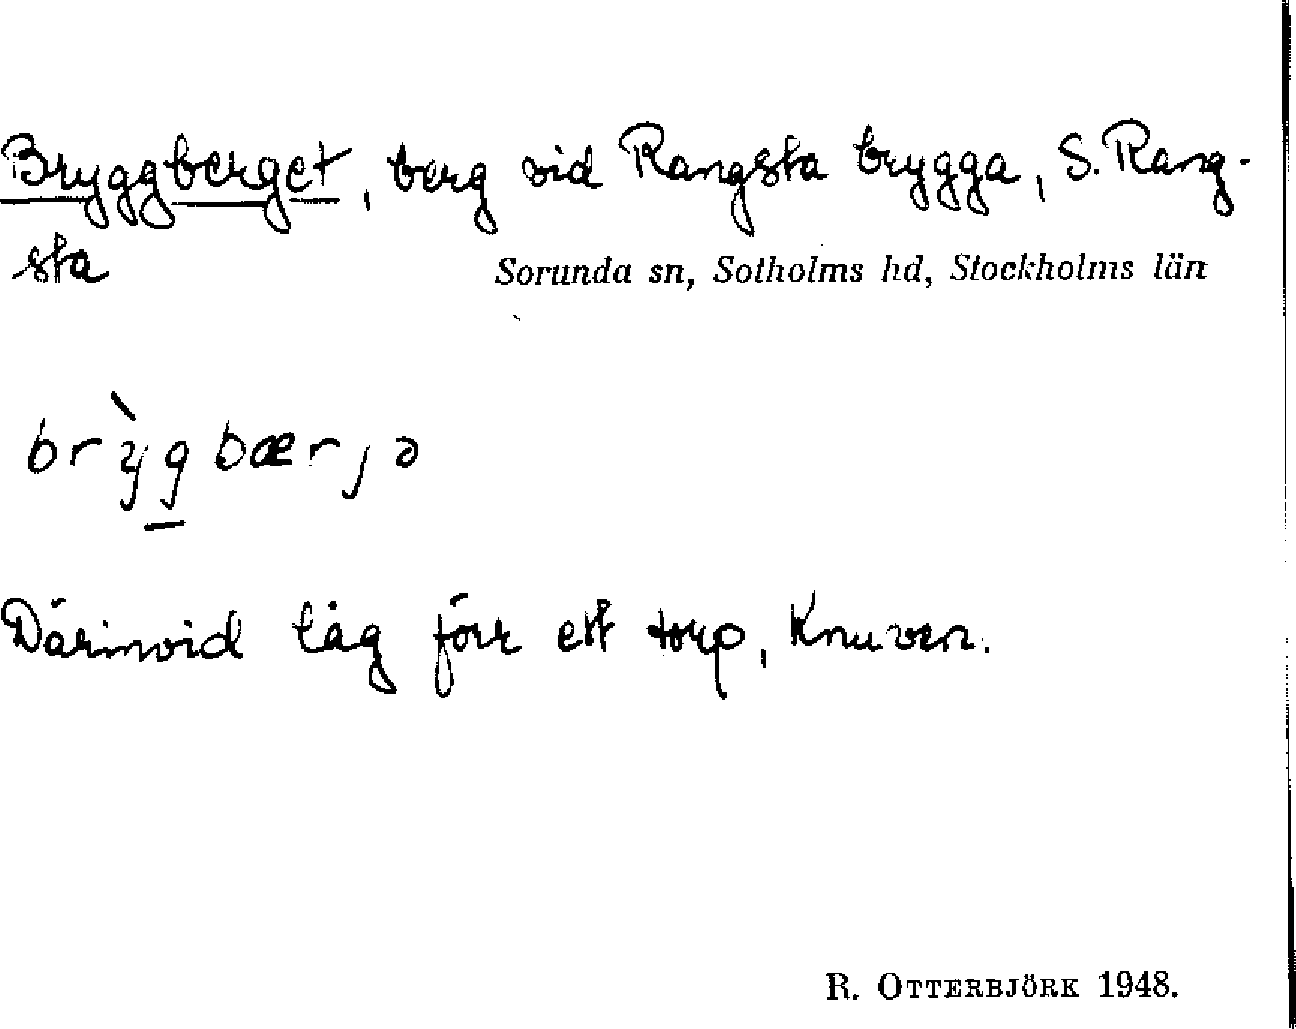 Bryggberget, berg vid Rangsta brygga, S. Rang-
sta
Sorunda sn, Sotholms hd, Stockholms län
brỳg̲bærjə
Därinvid låg förr ett torp, Knuven.
R. OTTERBJÖRK 1948.